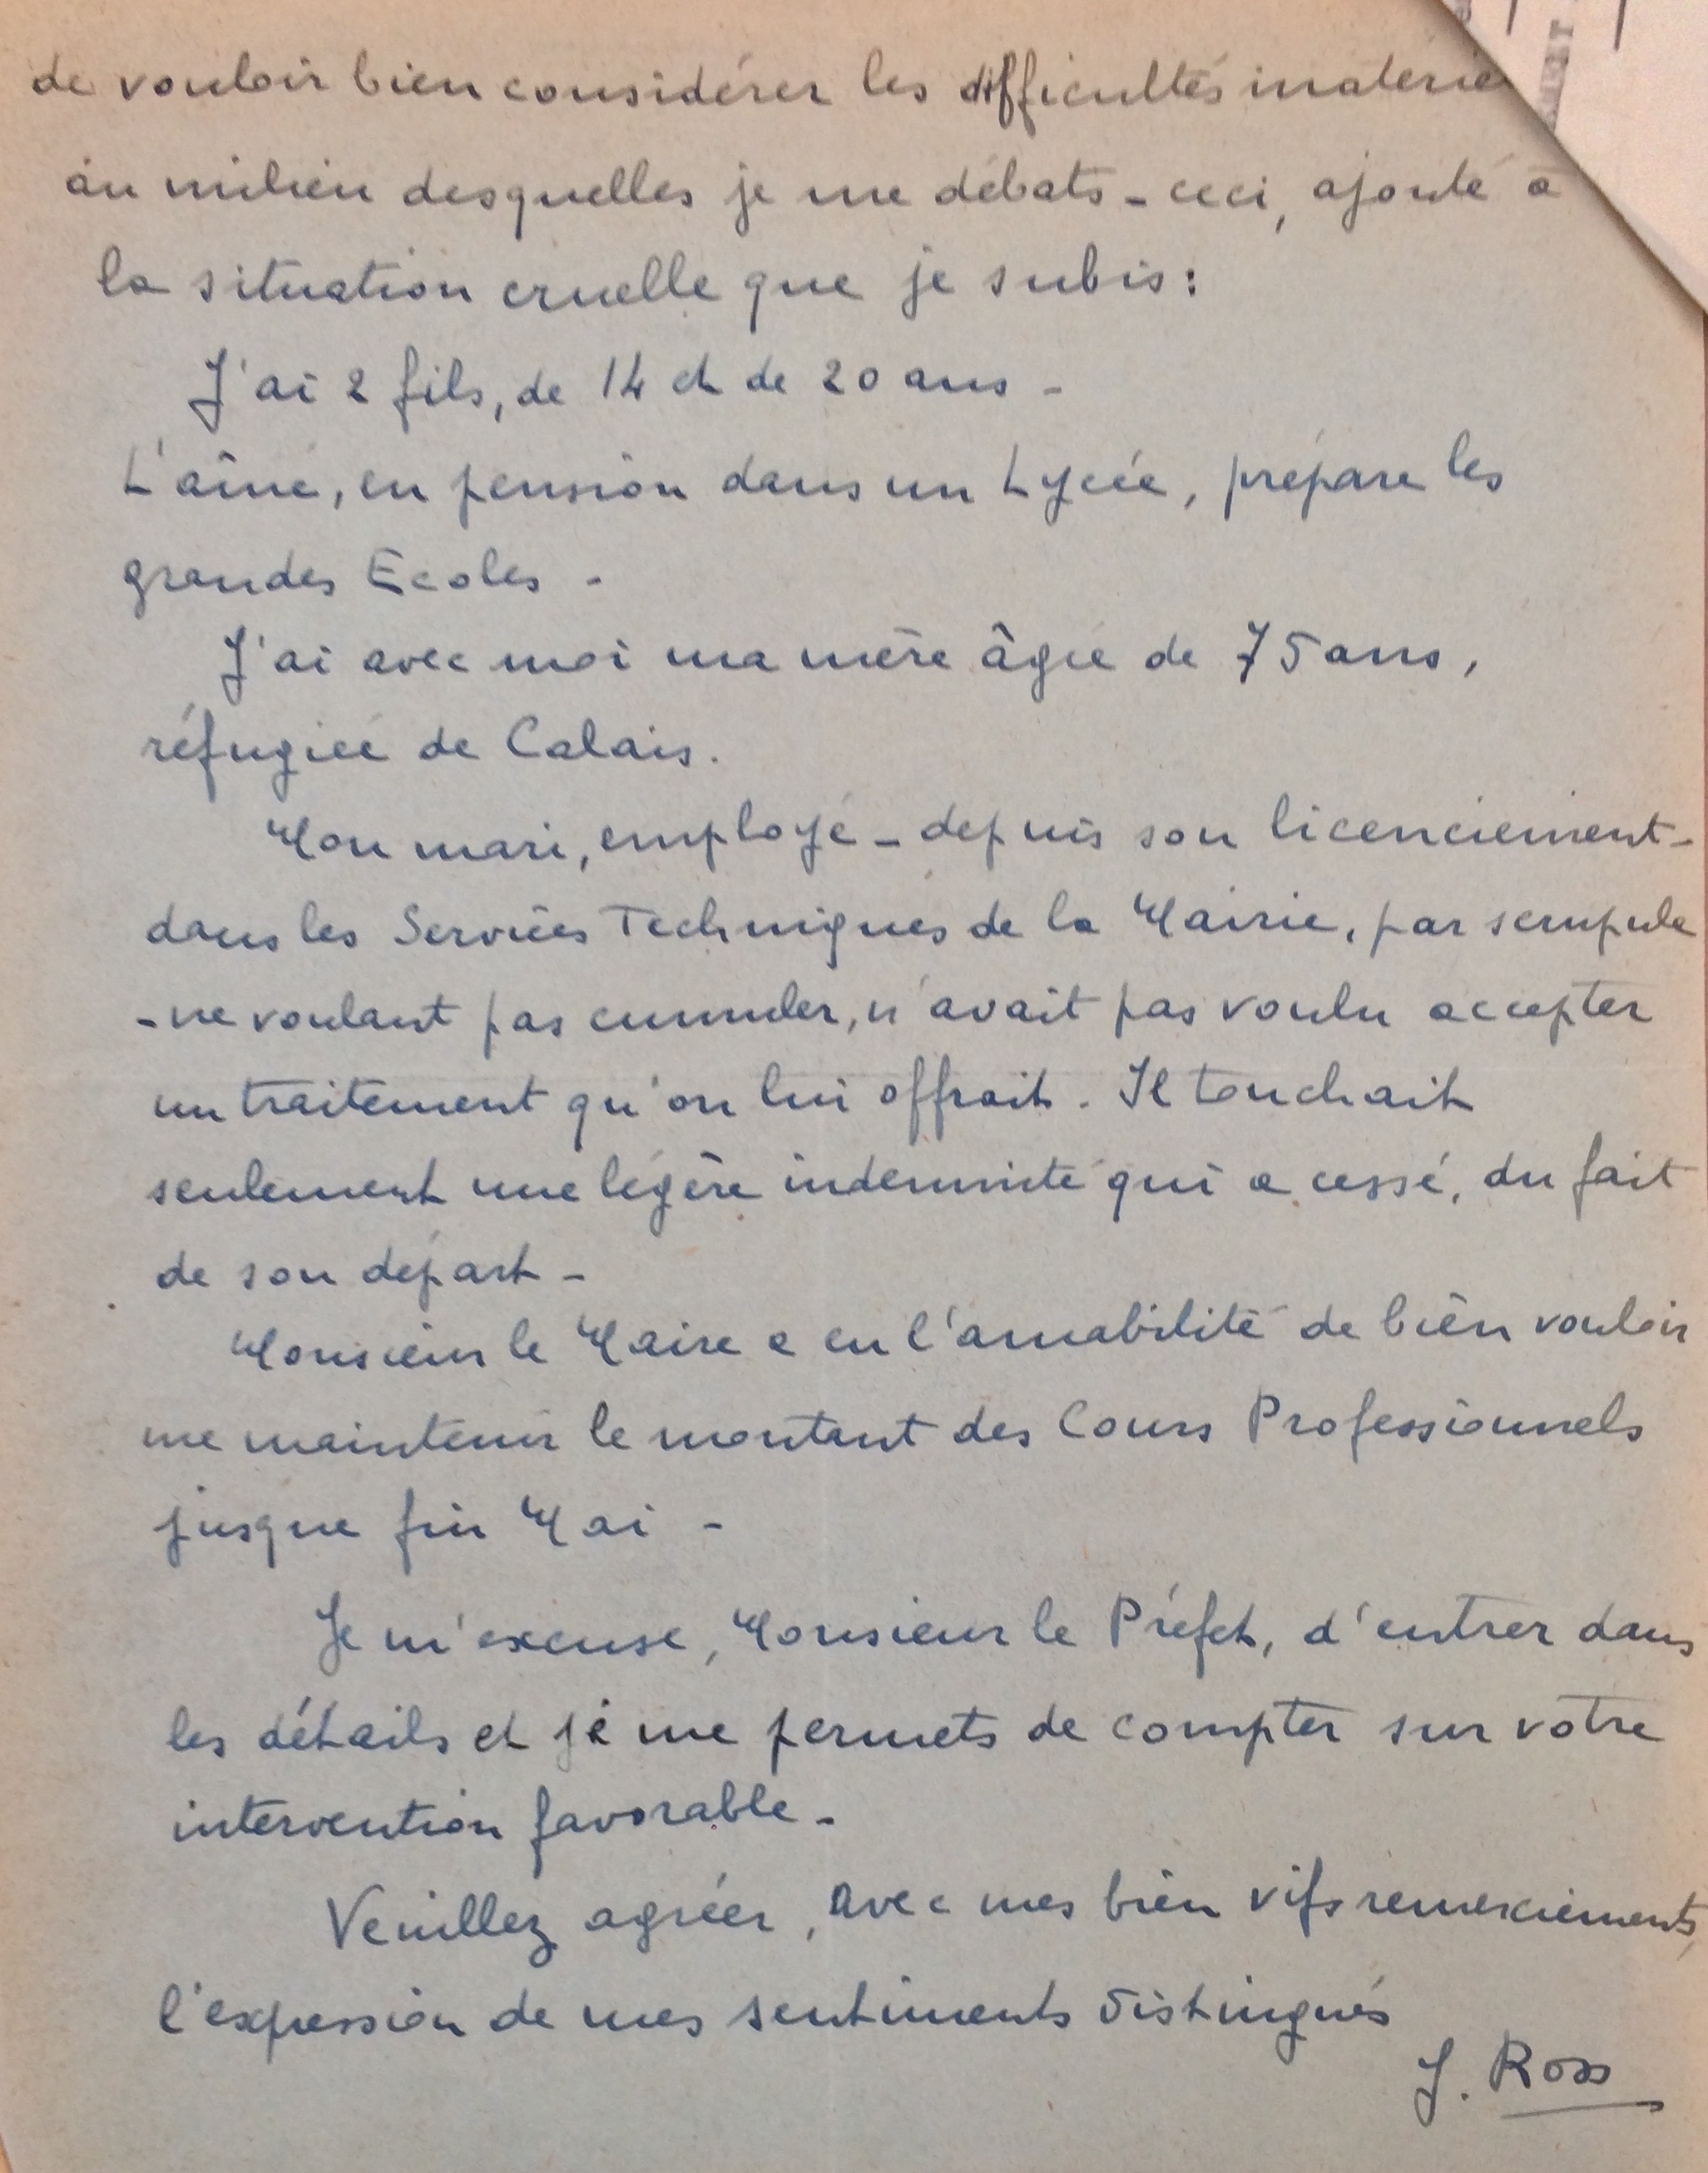 de vouloir bien considérer les difficultés matérie
au milieu desquelles je me débats - ceci, ajouté à
la situation cruelle que je subis :
J'ai 2 fils, de 14 et de 20 ans -
L'aîné, en pension dans un Lycée, prépare les
grandes Ecoles -
J'ai avec moi ma mère âgée de 75 ans,
réfugiée de Calais.
Mon mari, employé - depuis son licenciement -
dans les Services Techniques de la Mairie, par scrupule
- ne voulant pas cumuler, n'avait pas voulu accepter
un traitement qu'on lui offrait. Il touchait
seulement une légère indemnité qui a cessé, du fait
de son départ -
Monsieur le Maire a eu l'amabilité de bien vouloir
me maintenir le montant des Cours Professionnels
jusque fin Mai -
Je m'excuse, Monsieur le Préfet, d'entrer dans
les détails et je me permets de compter sur votre
intervention favorable -
Veuillez agréer, avec mes bien vifs remerciements,
l'expression de mes sentiments distingués
J. Ross